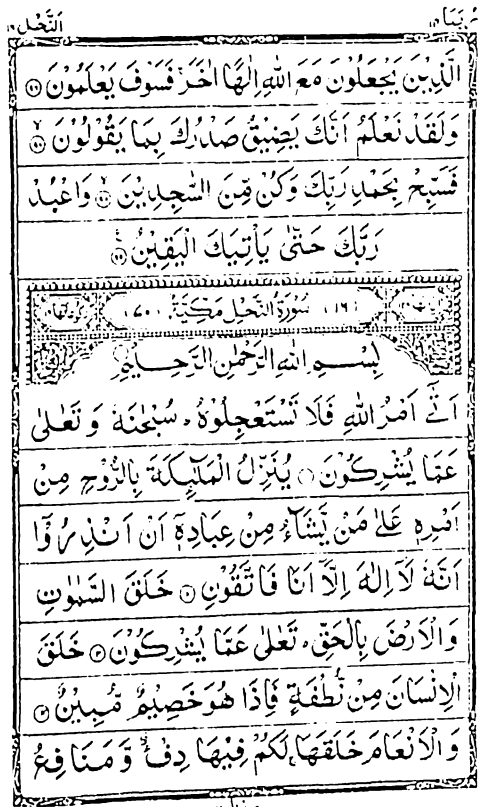 ربما ١٤ النحل ١٦
الَّذِيْنَ يَجْعَلُوْنَ مَعَ اللّٰهِ اِلٰهًا اٰخَرَ ۚ فَسَوْفَ يَعْلَمُوْنَ ﴿۹۶﴾
وَلَقَدْ نَعْلَمُ اَنَّكَ يَضِيْقُ صَدْرُكَ بِمَا يَقُوْلُوْنَ ﴿۹۷﴾
فَسَبِّحْ بِحَمْدِ رَبِّكَ وَكُنْ مِّنَ السّٰجِدِيْنَ ﴿۹۸﴾ وَاعْبُدْ
رَبَّكَ حَتّٰى يَاْتِيَكَ الْيَقِيْنُ ﴿۹۹﴾
(١٦) سُوْرَةُ النَّحْلِ مَكِّيَّةٌ (٧٠)
بِسْمِ اللّٰهِ الرَّحْمٰنِ الرَّحِيْمِ
اَتٰۤى اَمْرُ اللّٰهِ فَلَا تَسْتَعْجِلُوْهُ ؕ سُبْحٰنَهٗ وَتَعٰلٰى
عَمَّا يُشْرِكُوْنَ ﴿۱﴾ يُنَزِّلُ الْمَلٰٓئِكَةَ بِالرُّوْحِ مِنْ
اَمْرِهٖ عَلٰى مَنْ يَّشَآءُ مِنْ عِبَادِهٖۤ اَنْ اَنْذِرُوْۤا
اَنَّهٗ لَاۤ اِلٰهَ اِلَّاۤ اَنَا فَاتَّقُوْنِ ﴿۲﴾ خَلَقَ السَّمٰوٰتِ
وَالْاَرْضَ بِالْحَقِّ ؕ تَعٰلٰى عَمَّا يُشْرِكُوْنَ ﴿۳﴾ خَلَقَ
الْاِنْسَانَ مِنْ نُّطْفَةٍ فَاِذَا هُوَ خَصِيْمٌ مُّبِيْنٌ ﴿۴﴾
وَالْاَنْعَامَ خَلَقَهَا ۚ لَكُمْ فِيْهَا دِفْءٌ وَّمَنَافِعُ